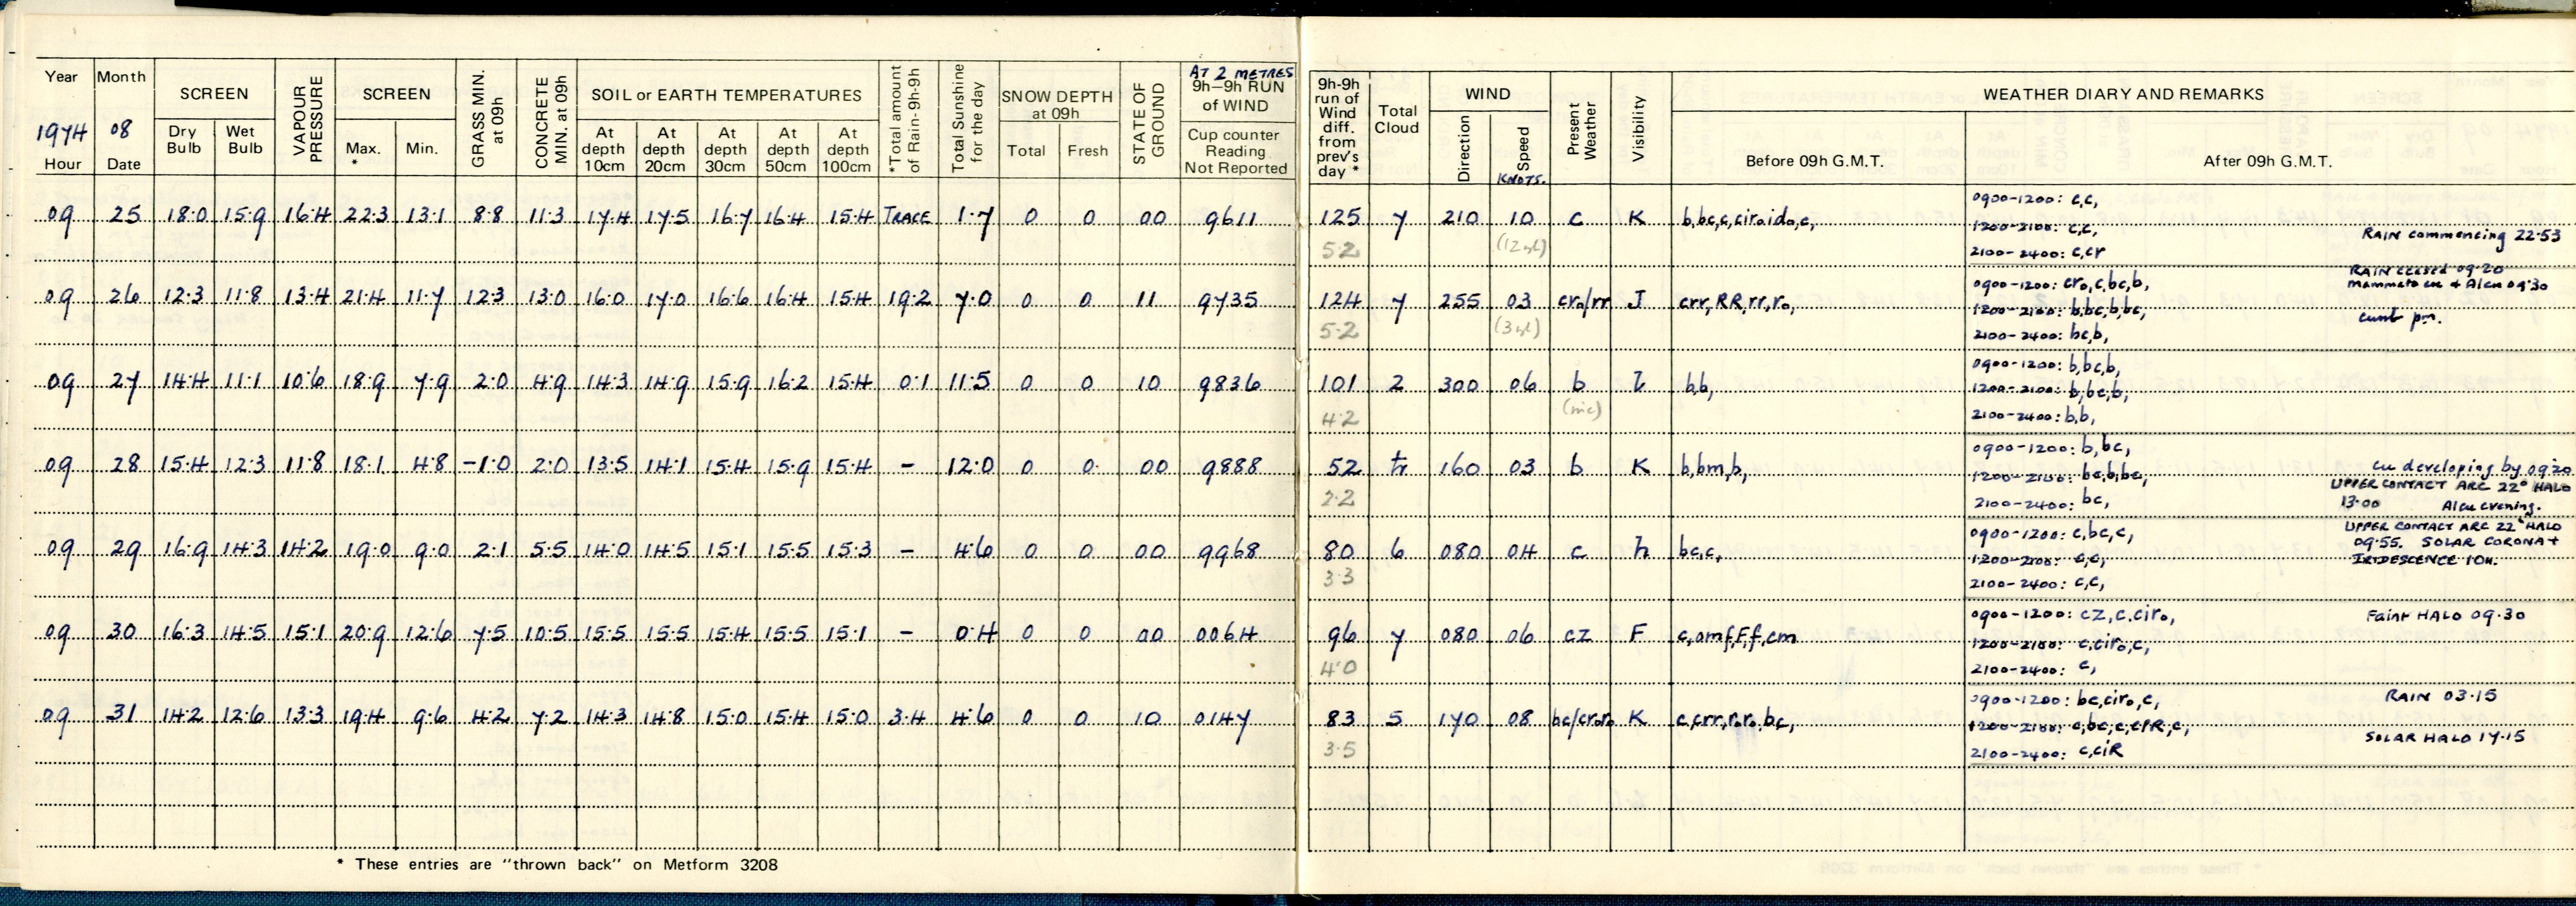 Year Month SCREEN VAPOUR PRESSURE SCREEN GRASS MIN. at 09h CONCRETE MIN. at 09h SOIL or EARTH TEMPERATURES *Total amount of Rain-9h-9h Total Sunshine for the day SNOW DEPTH at 09h STATE OF GROUND AT 2 METRES 9h–9h RUN of WIND
1974 08 Dry Bulb Wet Bulb Max. * Min. At depth 10cm At depth 20cm At depth 30cm At depth 50cm At depth 100cm Total Fresh Cup counter Reading Not Reported
Hour Date
09 25 18.0 15.9 16.4 22.3 13.1 8.8 11.3 17.4 17.5 16.7 16.4 15.4 TRACE 1.7 0 0 00 9611
09 26 12.3 11.8 13.4 21.4 11.7 12.3 13.0 16.0 17.0 16.6 16.4 15.4 19.2 7.0 0 0 11 9735
09 27 14.4 11.1 10.6 18.9 7.9 2.0 4.9 14.3 14.9 15.9 16.2 15.4 0.1 11.5 0 0 10 9836
09 28 15.4 12.3 11.8 18.1 4.8 -1.0 2.0 13.5 14.1 15.4 15.9 15.4 - 12.0 0 0 00 9888
09 29 16.9 14.3 14.2 19.0 9.0 2.1 5.5 14.0 14.5 15.1 15.5 15.3 - 4.6 0 0 00 9968
09 30 16.3 14.5 15.1 20.9 12.6 7.5 10.5 15.5 15.5 15.4 15.5 15.1 - 0.4 0 0 00 0064
09 31 14.2 12.6 13.3 19.4 9.6 4.2 7.2 14.3 14.8 15.0 15.4 15.0 3.4 4.6 0 0 10 0147
* These entries are “thrown back” on Metform 3208
9h-9h run of Wind diff. from prev's day * Total Cloud WIND Present Weather Visibility WEATHER DIARY AND REMARKS
Direction Speed KNOTS. Before 09h G.M.T. After 09h G.M.T.
125 7 210 10 c K b,bc,c,ciro,ido,c, 0900-1200: c,c,
5.2 1200-2100: c,c, RAIN commencing 22.53
2100-2400: c,cr
124 7 255 03 cro/rr J crr,RR,rr,ro, 0900-1200: cro,c,bc,b, RAIN ceased 09.20
mammato cu + Alcu 09.30
5.2 1200-2100: b,bc,b,bc, cunb pm.
2100-2400: bc,b,
101 2 300 06 b b,b, 0900-1200: b,bc,b,
4.2 1200-2100: b,bc,b,
2100-2400: b,b,
52 tr 160 03 b K b,bm,b, 0900-1200: b,bc,
2.2 1200-2100: bc,b,bc, cu developing by 09.20
UPPER CONTACT ARC 22° HALO
2100-2400: bc, 13.00 Alcu evening.
80 6 080 04 c bc,c, 0900-1200: c,bc,c, UPPER CONTACT ARC 22° HALO
09.55. SOLAR CORONA +
3.3 1200-2100: c,c, IRIDESCENCE 10h.
2100-2400: c,c,
96 7 080 06 cz F c,omf,F,f,cm 0900-1200: cz,c,ciro, Faint HALO 09.30
4.0 1200-2100: c,ciro,c,
2100-2400: c,
83 5 170 08 bc/croro K c,crr,r,ro,bc, 0900-1200: bc,ciro,c, RAIN 03.15
3.5 1200-2100: c,bc,c,cPR,c, SOLAR HALO 17.15
2100-2400: c,ciR